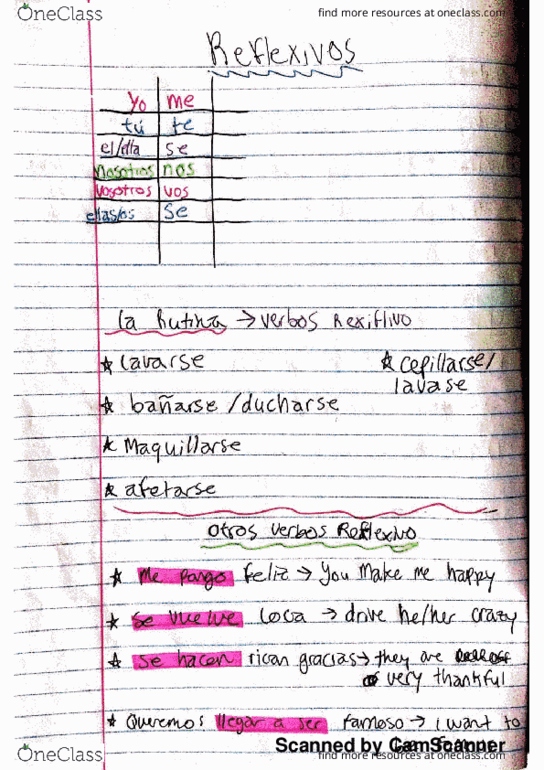 OneClass
find more resources at oneclass.com
Reflexivos
Yo me
tú te
el/ella se
Nosotros nos
Vosotros vos
ellas/os se
La Rutina → verbos Rexiflivo
★ Lavarse
★ cepillarse/
lavase
★ bañarse /ducharse
★ Maquillarse
★ afetarse
Otros verbos Reflexivo
★ Me pongo feliz → You Make me happy
★ se vuelve Loca → drive he/her crazy
★ se hacen rican gracias → they are
very thankful
★ Queremos llegar a ser famoso → I want to
Scanned by CamScanner
OneClass
find more resources at oneclass.com